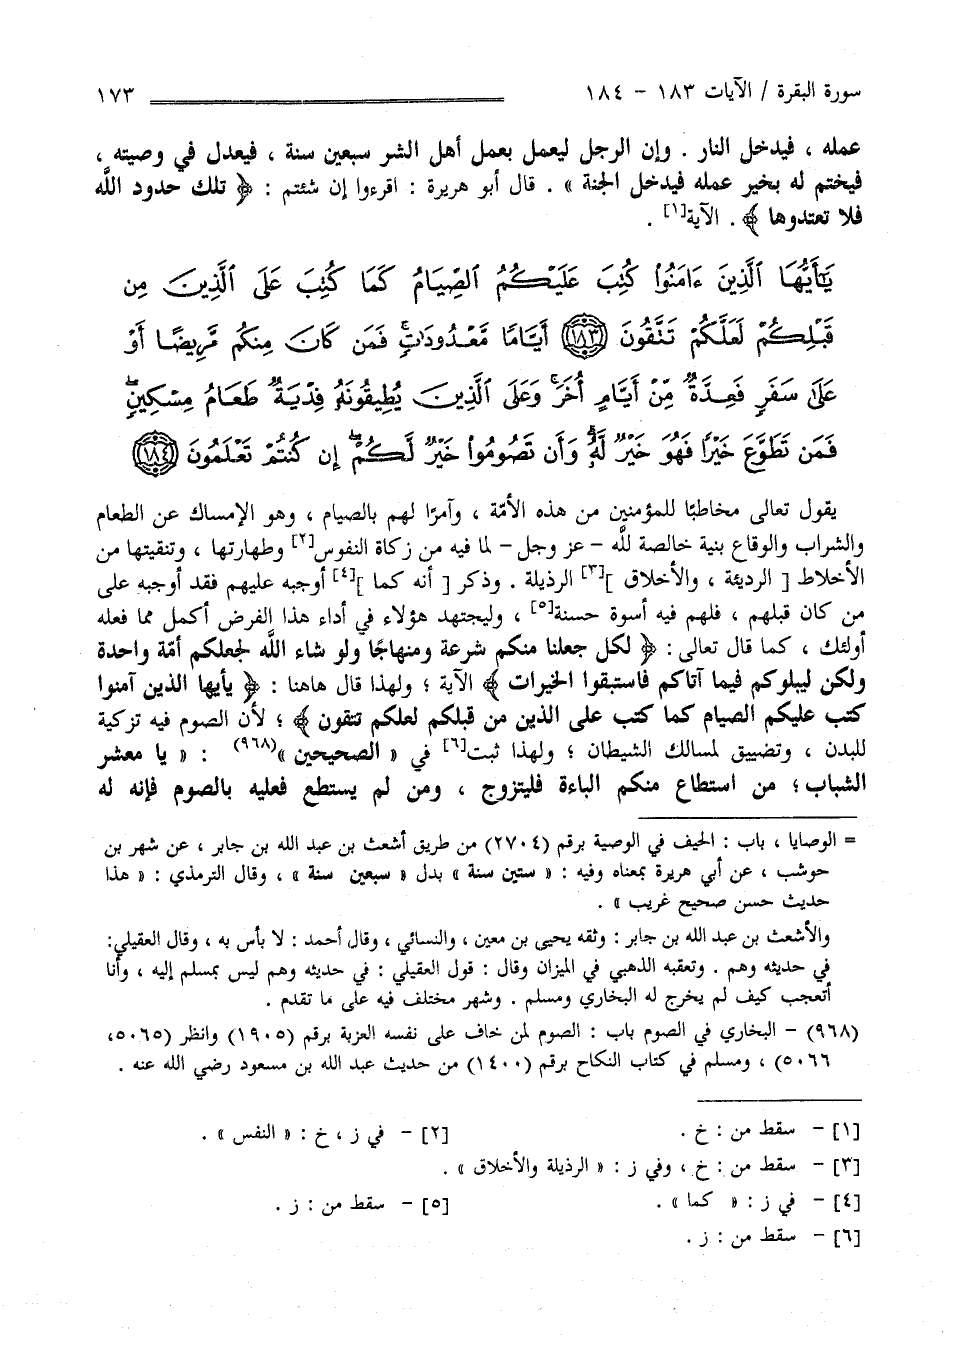 سورة البقرة / الآيات ١٨٣ - ١٨٤ ١٧٣
عمله ، فيدخل النار . وإن الرجل ليعمل بعمل أهل الشر سبعين سنة ، فيعدل في وصيته ،
فيختم له بخير عمله فيدخل الجنة » . قال أبو هريرة : اقرءوا إن شئتم : ﴿ تلك حدود اللَّه
فلا تعتدوها ﴾ . الآية[١] .
يَٰٓأَيُّهَا ٱلَّذِينَ ءَامَنُوا۟ كُتِبَ عَلَيْكُمُ ٱلصِّيَامُ كَمَا كُتِبَ عَلَى ٱلَّذِينَ مِن
قَبْلِكُمْ لَعَلَّكُمْ تَتَّقُونَ ١٨٣ أَيَّامًا مَّعْدُودَٰتٍ ۚ فَمَن كَانَ مِنكُم مَّرِيضًا أَوْ
عَلَىٰ سَفَرٍ فَعِدَّةٌ مِّنْ أَيَّامٍ أُخَرَ ۚ وَعَلَى ٱلَّذِينَ يُطِيقُونَهُۥ فِدْيَةٌ طَعَامُ مِسْكِينٍ ۖ
فَمَن تَطَوَّعَ خَيْرًا فَهُوَ خَيْرٌ لَّهُۥ ۚ وَأَن تَصُومُوا۟ خَيْرٌ لَّكُمْ ۖ إِن كُنتُمْ تَعْلَمُونَ ١٨٤
يقول تعالى مخاطبًا للمؤمنين من هذه الأمّة ، وآمرًا لهم بالصيام ، وهو الإمساك عن الطعام
والشراب والوقاع بنية خالصة للَّه - عز وجل - لما فيه من زكاة النفوس[٢] وطهارتها ، وتنقيتها من
الأخلاط [ الرديئة ، والأخلاق ][٣] الرذيلة . وذكر [ أنه كما ][٤] أوجبه عليهم فقد أوجبه على
من كان قبلهم ، فلهم فيه أسوة حسنة[٥] ، وليجتهد هؤلاء في أداء هذا الفرض أكمل مما فعله
أولئك ، كما قال تعالى : ﴿ لكل جعلنا منكم شرعة ومنهاجًا ولو شاء اللَّه لجعلكم أمّة واحدة
ولكن ليبلوكم فيما آتاكم فاستبقوا الخيرات ﴾ الآية ؛ ولهذا قال هاهنا : ﴿ يأيها الذين آمنوا
كتب عليكم الصيام كما كتب على الذين من قبلكم لعلكم تتقون ﴾ ؛ لأن الصوم فيه تزكية
للبدن ، وتضييق لمسالك الشيطان ؛ ولهذا ثبت[٦] في « الصحيحين »(٩٦٨) : « يا معشر
الشباب ؛ من استطاع منكم الباءة فليتزوج ، ومن لم يستطع فعليه بالصوم فإنه له
= الوصايا ، باب : الحيف في الوصية برقم (٢٧٠٤) من طريق أشعث بن عبد الله بن جابر ، عن شهر بن
حوشب ، عن أبي هريرة بمعناه وفيه : « ستين سنة » بدل « سبعين سنة » ، وقال الترمذي : « هذا
حديث حسن صحيح غريب » .
والأشعث بن عبد الله بن جابر : وثقه يحيى بن معين ، والنسائي ، وقال أحمد : لا بأس به ، وقال العقيلي:
في حديثه وهم . وتعقبه الذهبي في الميزان وقال : قول العقيلي : في حديثه وهم ليس بمسلم إليه ، وأنا
أتعجب كيف لم يخرج له البخاري ومسلم . وشهر مختلف فيه على ما تقدم .
(٩٦٨) - البخاري في الصوم باب : الصوم لمن خاف على نفسه العزبة برقم (١٩٠٥) وانظر (٥٠٦٥،
٥٠٦٦) ، ومسلم في كتاب النكاح برقم (١٤٠٠) من حديث عبد الله بن مسعود رضي الله عنه .
[١] - سقط من : خ . [٢] - في ز ، خ : « النفس » .
[٣] - سقط من : خ ، وفي ز : « الرذيلة والأخلاق » .
[٤] - في ز : « كما » . [٥] - سقط من : ز .
[٦] - سقط من : ز .